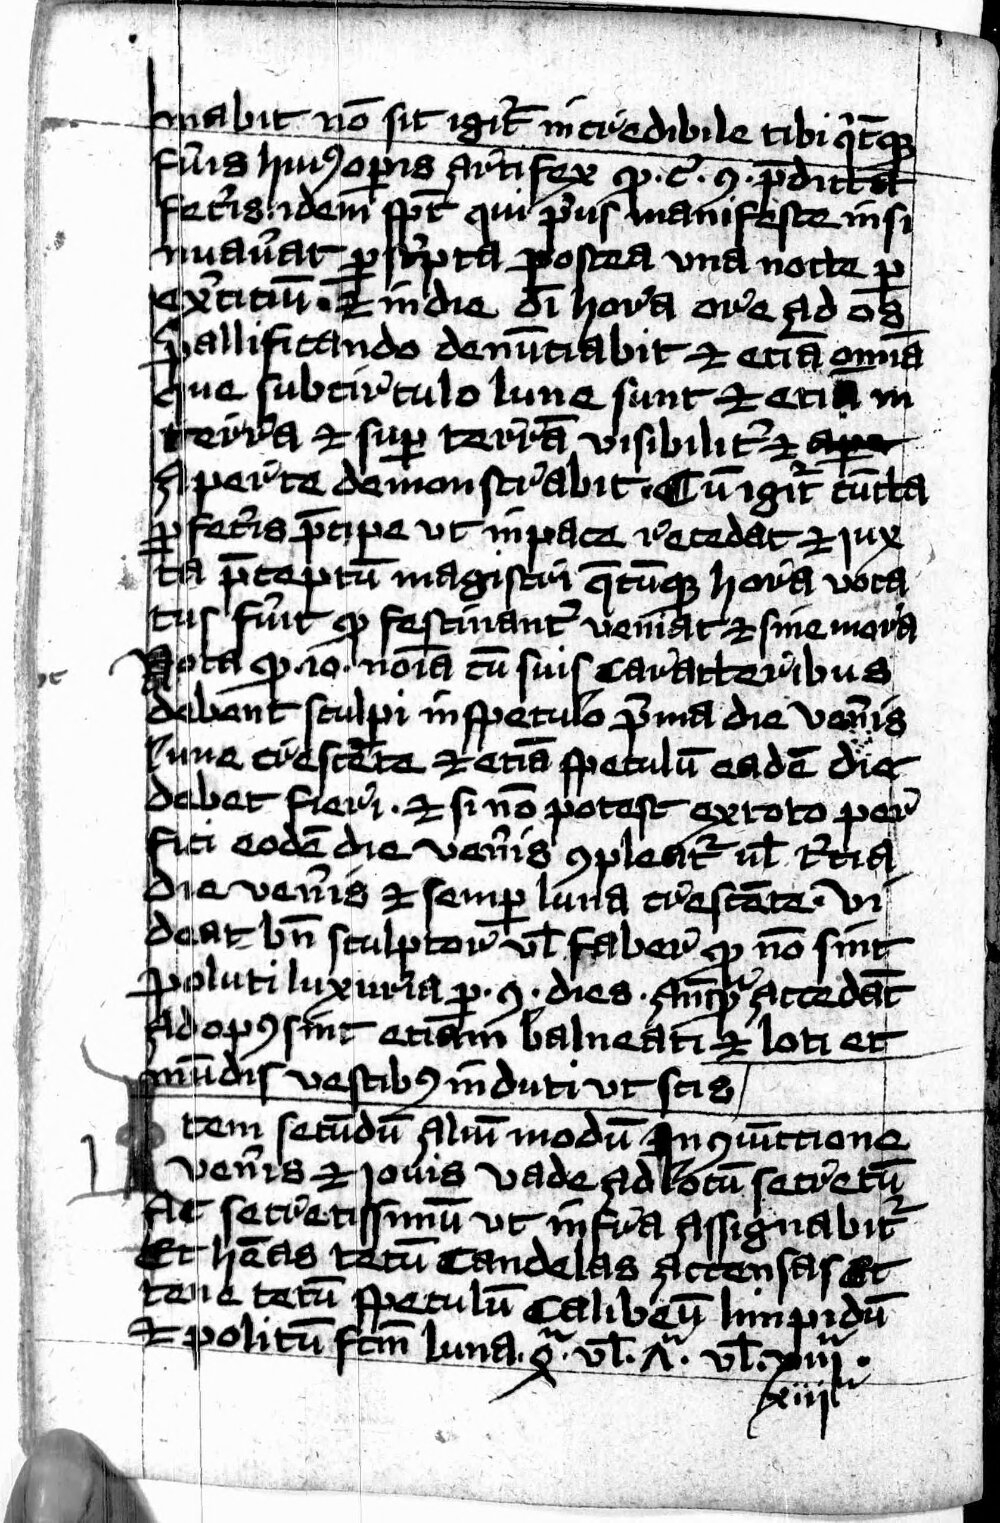 mabit nō sit igit̄ incredibile tibi q̄tcūq̄
fūis huiꝯ opis artifex ꝙ .c̄. ꝯ. p̄dicta
fec̄is. idem sp̄t qui p̄us manifeste insi
nuav̄at ꝑ sc̄pta postea una nocte ꝑ
ex̄citiū. ⁊ in die dī hora ore ad os
ꝑallificando denūciabit ⁊ etiā omnia
que sub circulo lune sunt ⁊ etiā in
terra ⁊ suꝑ terrā visibilit̄ ⁊
aperte demonstrabit. Cū igit̄ cūcta
ꝑfec̄is p̄cipe ut in pace recedat ⁊ iux
ta p̄ceptū magistri q̄cūq̄ hora voca
tus fūit ꝙ festinant̄ veniat ⁊ sine mora
Nota ꝙ .10. noīa cū suis caracteribus
debent sculpi in speculo p̄ma die ven̄is
lune crescēte ⁊ etiā speculū eadē die
debet fieri. ⁊ si nō potest ex toto per
fici eodē die ven̄is ꝯpleat̄ ul̄ t̄cia
die ven̄is ⁊ semꝑ luna crescēte. Vi
deat bn̄ sculptor vl̄ faber ꝙ nō sint
poluti luxuria ꝑ .ꝯ. dies. anq̄ accedāt
ad opꝯ sint etiam balneati ⁊ loti et
mūdis vestibꝯ induti ut scis
Item secūdū aliū modū In ꝯiūctione
ven̄is ⁊ Jovis vade ad locū secretū
Ac secretissimū ut infra assignabit̄
Et hēas tecū candelas accensas Et
tene tecū speculū calibeū limpidū
⁊ politū fc̄m luna. vl̄. vl̄. xiii.
xiiii